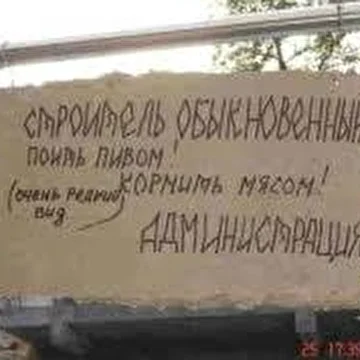 СТРОИТЕЛЬ ОБЫКНОВЕННЫЙ
ПОИТЬ ПИВОМ!
(очень редкий вид) КОРМИТЬ МЯСОМ!
АДМИНИСТРАЦИЯ